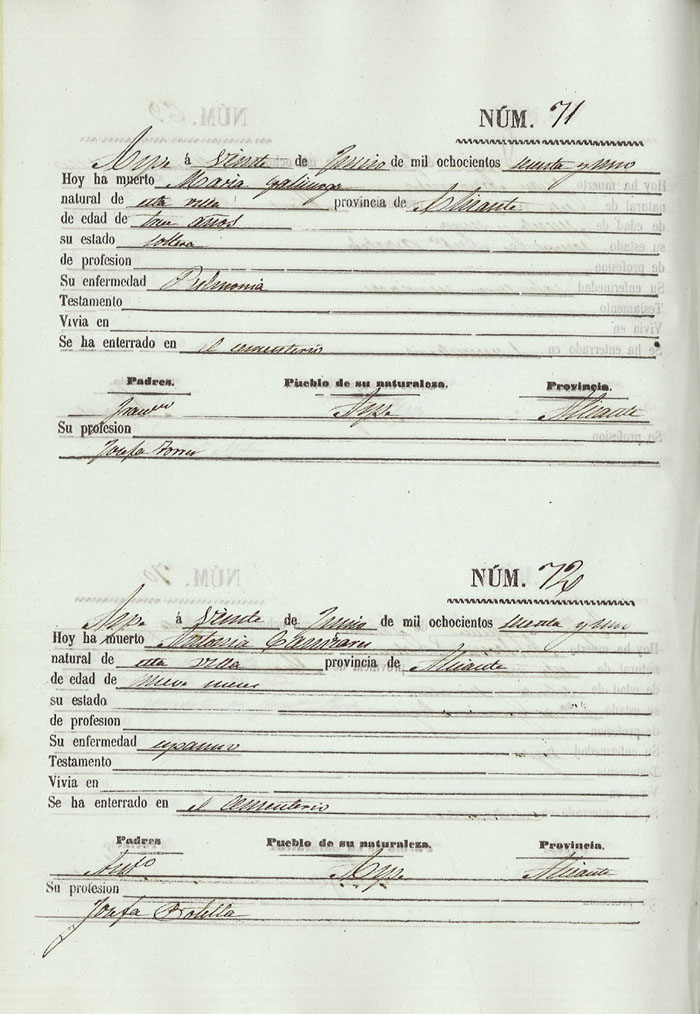 NÚM. 71
Aspe á Veinte de Junio de mil ochocientos sesenta y uno
Hoy ha muerto Maria
natural de esta villa provincia de Alicante
de edad de tres años
su estado soltera
de profesion
Su enfermedad Pulmonia
Testamento
Vivia en
Se ha enterrado en el cementerio
Padres. Pueblo de su naturaleza. Provincia.
Aspe Alicante
Su profesion
Josefa Torres
NÚM. 72
Aspe á Veinte de Junio de mil ochocientos sesenta y uno
Hoy ha muerto Antonia Cañizares
natural de esta villa provincia de Alicante
de edad de nueve meses
su estado
de profesion
Su enfermedad espasmo
Testamento
Vivia en
Se ha enterrado en el Cementerio
Padres Pueblo de su naturaleza. Provincia.
Aspe Alicante
Su profesion
Josefa Botella